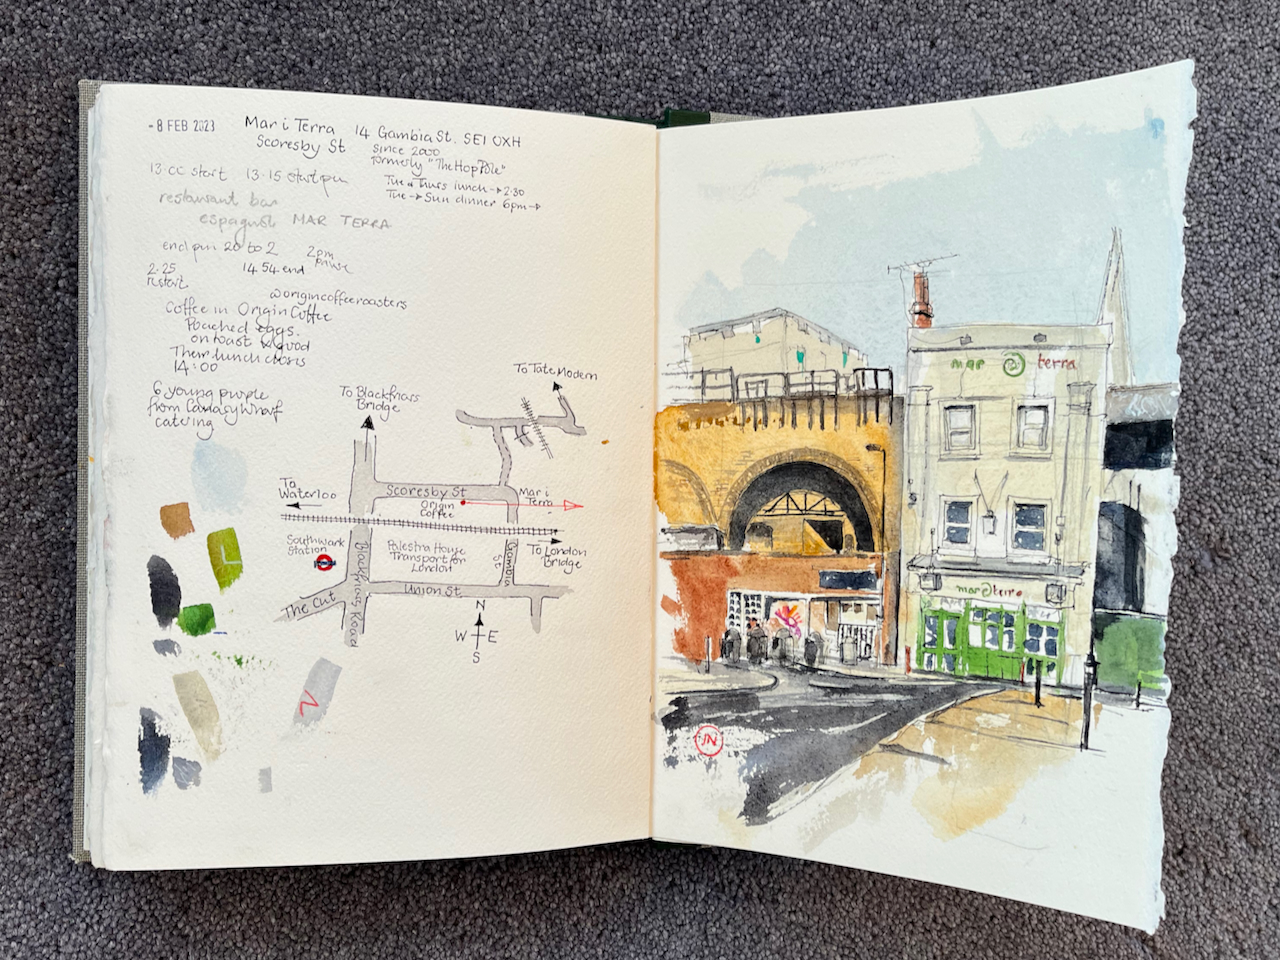 -8 FEB 2023
Mar i Terra 14 Gambia St. SE1 0XH
Scoresby St since 2000
formerly "The Hop Pole"
Tue → Thurs lunch → 2:30
Tue → Sun dinner 6pm →
13.00 start 13.15 start pen
restaurant bar
espagnol MAR TERRA
end pen 20 to 2
2pm pause
2.25 restart
14 54 end
@origincoffeeroasters
Coffee in Origin Coffee
Poached eggs
on toast v. good
Their lunch closes
14:00
6 young people
from Canary Wharf
catering
To Tate Modern
To Blackfriars
Bridge
To
Waterloo
Scoresby St
Origin
Coffee
Mar i
Terra
Southwark
Station
Blackfriars Road
Palestra House
Transport for
London
Gambia St
To London
Bridge
The Cut
Union St
N
W E
S
mar terra
mar terra
JN